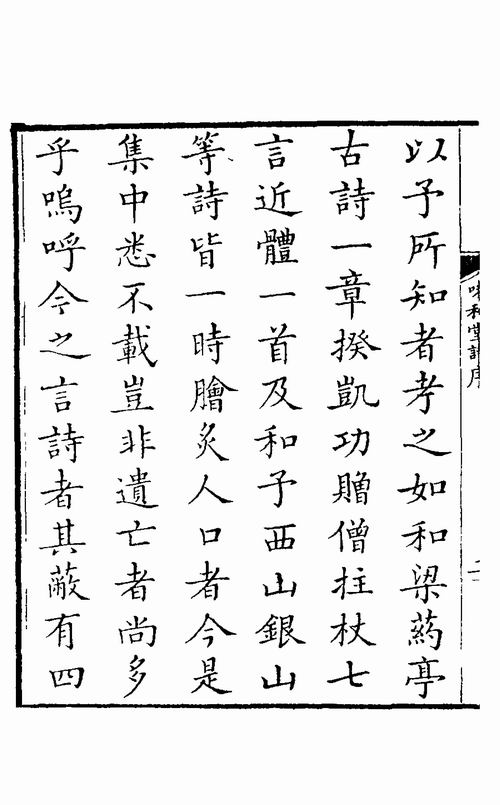 以予所知者考之如和梁葯亭
古詩一章揆凱功贈僧拄杖七
言近體一首及和予西山銀山
等詩皆一時膾炙人口者今是
集中悉不載豈非遺亡者尚多
乎嗚呼今之言詩者其蔽有四